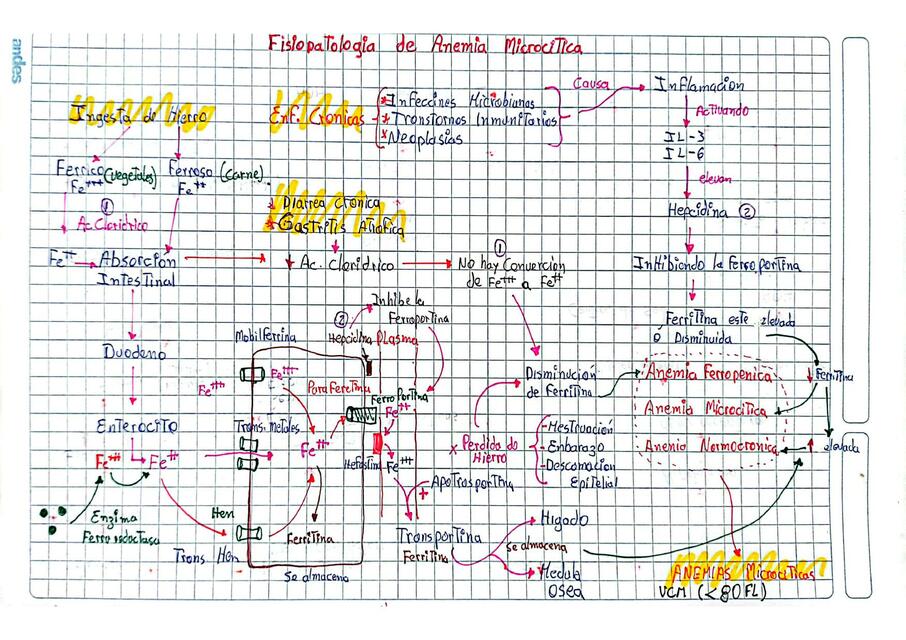 andes
Fisiopatologia de Anemia Microcitica
Ingesta de Hierro
Ferrico (vegetales)
Fe+++
Ferroso (carne).
Fe++
①
Ac. Cloridrico
Fe++ → Absorción
Intestinal
Duodeno
Enterocito
Fe+++ → Fe++
Enzima
Ferro reductasa
Enf. Cronicas
* Infeccines Microbianas
* Transtornos Inmunitarios
* Neoplasias
Causa
Inflamacion
Activando
IL-3
IL-6
elevan
Hepcidina ②
Inhibiendo la ferroportina
Ferritina este elevada
ó Disminuida
* Diarrea Cronica
* Gastritis Atrofica
↓ Ac. Cloridrico
①
No hay Convercion
de Fe+++ a Fe++
Inhibe la
Ferroportina
②
Hepcidina
Plasma
Mobilferrina
Fe+++
Fe+++
Paraferetina
Ferroportina
Fe++
Trans. metales
Fe++
Hefastina
Fe+++
Hem
Trans. Hem
Ferritina
Se almacena
Apotrasportina
+
Transportina
Ferritina
Se almacena
Higado
Medula
Osea
Disminución
de Ferritina
x Perdida de
Hierro
-Mestruación
-Enbarazo
-Descamacion
Epitelial
Anemia Ferropenica
Anemia Microcitica
Anemia Normocronica
↓ Ferritina
↑ elevada
ANEMIAS Microciticas
VCM (<80FL)